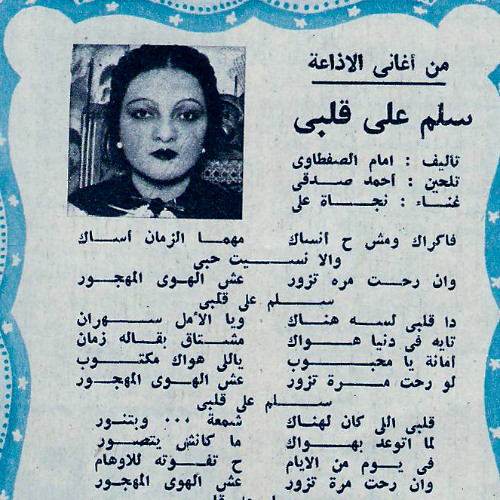 من أغانى الاذاعة
سلم على قلبى
تأليف : امام الصفطاوى
تلحين : أحمد صدقى
غناء : نجاة على
فاكراك ومش ح أنساك مهما الزمان أساك
والا نسيت حبى
وان رحت مره تزور عش الهوى المهجور
سلم على قلبى
دا قلبى لسه هناك ويا الأمل سهران
تايه فى دنيا هواك مشتاق بقاله زمان
أمانة يا محبوب ياللى هواك مكتوب
لو رحت مرة تزور عش الهوى المهجور
سلم على قلبى
قلبى اللى كان لهناك شمعة ... وبتنور
لما اتوعد بهواك ما كانش يتصور
فى يوم من الايام ح تفوته للاوهام
وان رحت مرة تزور عش الهوى المهجور